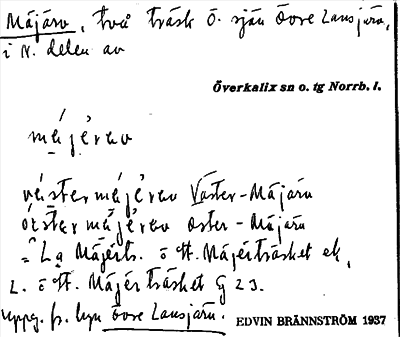 Måjärv, två träsk ö. sjön Övre Lansjärv,
i N. delen av
Överkalix sn o. tg Norrb. l.
måjérav
västermåjérav Väster-Måjärv
östermåjérav Öster-Måjärv
= La Måjérts. o. H. Måjérträsket ek,
L. o. H. Måjérträsket G 23.
uppg. fr. byn Övre Lansjärv.
EDVIN BRÄNNSTRÖM 1937